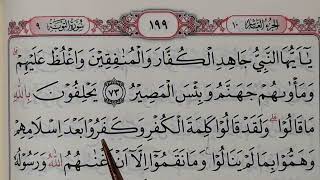 الجزء العاشر ١٠ ١٩٩ سورة التوبة ٩
يَٰٓأَيُّهَا ٱلنَّبِيُّ جَٰهِدِ ٱلْكُفَّارَ وَٱلْمُنَٰفِقِينَ وَٱغْلُظْ عَلَيْهِمْ
وَمَأْوَىٰهُمْ جَهَنَّمُ وَبِئْسَ ٱلْمَصِيرُ ٧٣ يَحْلِفُونَ بِٱللَّهِ
مَا قَالُوا۟ وَلَقَدْ قَالُوا۟ كَلِمَةَ ٱلْكُفْرِ وَكَفَرُوا۟ بَعْدَ إِسْلَٰمِهِمْ
وَهَمُّوا۟ بِمَا لَمْ يَنَالُوا۟ وَمَا نَقَمُوٓا۟ إِلَّآ أَنْ أَغْنَىٰهُمُ ٱللَّهُ وَرَسُولُهُۥ